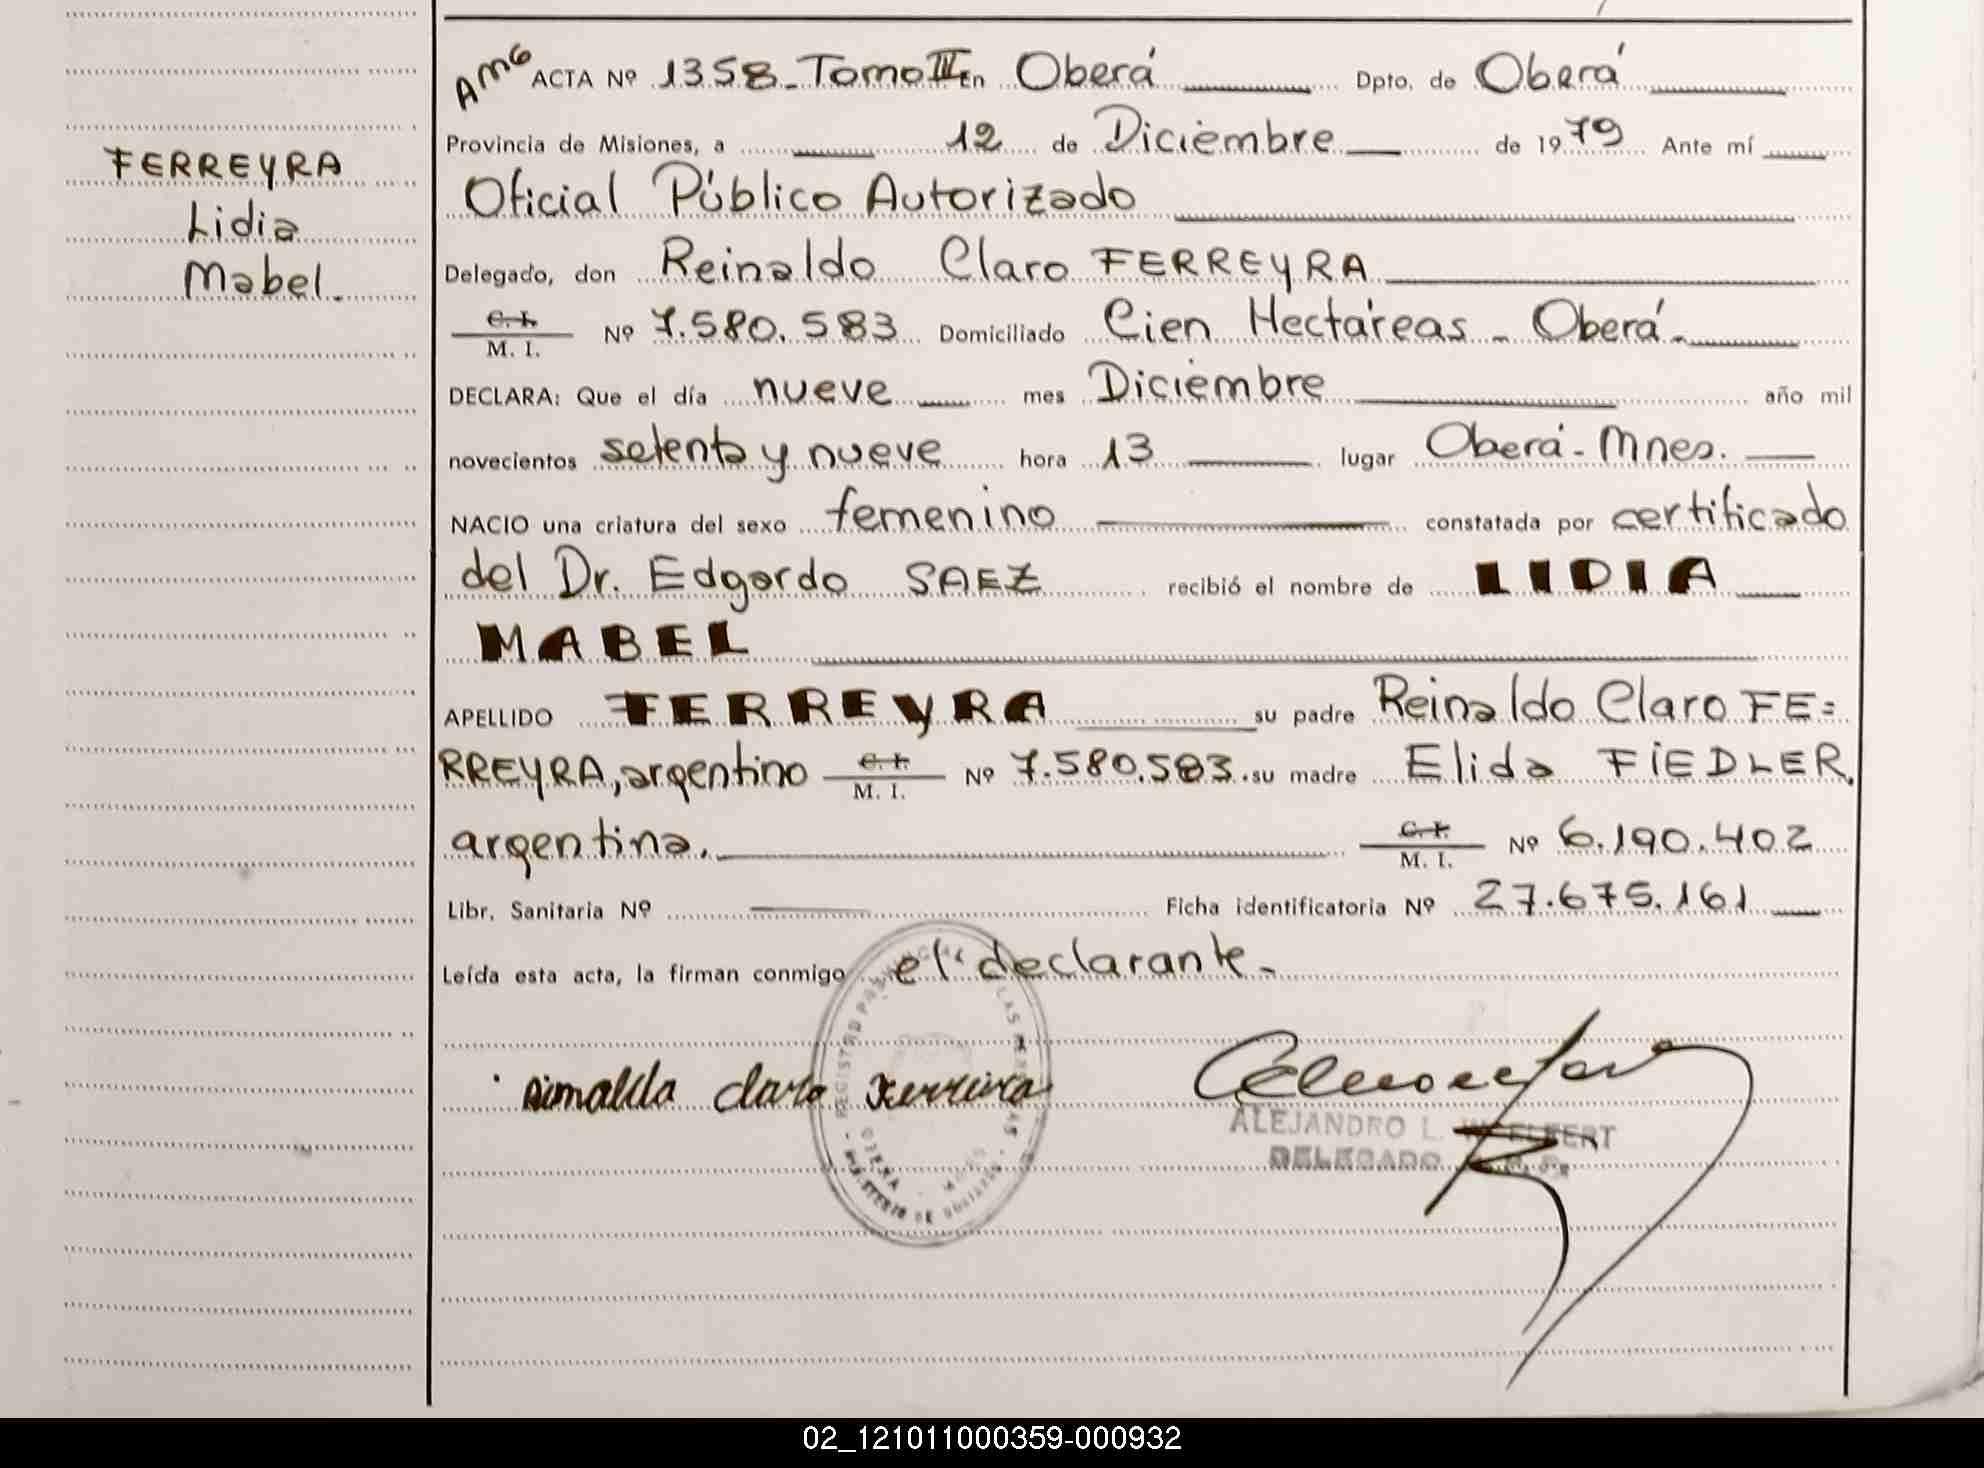 AMG ACTA Nº 1358 - Tomo III En Oberá Dpto. de Oberá
Provincia de Misiones, a 12 de Diciembre de 1979 Ante mí
FERREYRA
Lidia
Mabel.
Oficial Público Autorizado
Delegado, don Reinaldo Claro FERREYRA
C. I. M. I. Nº 7.580.583 Domiciliado Cien Hectáreas - Oberá -
DECLARA: Que el día nueve mes Diciembre año mil
novecientos setenta y nueve hora 13 lugar Oberá - Mnes.
NACIO una criatura del sexo femenino constatada por certificado
del Dr. Edgardo SAEZ recibió el nombre de LIDIA
MABEL
APELLIDO FERREYRA su padre Reinaldo Claro FE=
RREYRA, argentino C. I. M. I. Nº 7.580.583. su madre Elida FIEDLER,
argentina. C. I. M. I. Nº 6.190.402
Libr. Sanitaria Nº Ficha identificatoria Nº 27.675.161
Leída esta acta, la firman conmigo el declarante -
claro Ferreira
REGISTRO PROVINCIAL DE LAS PERSONAS
MINISTERIO DE GOBIERNO
ALEJANDRO L.
DELEGADO
02_121011000359-000932